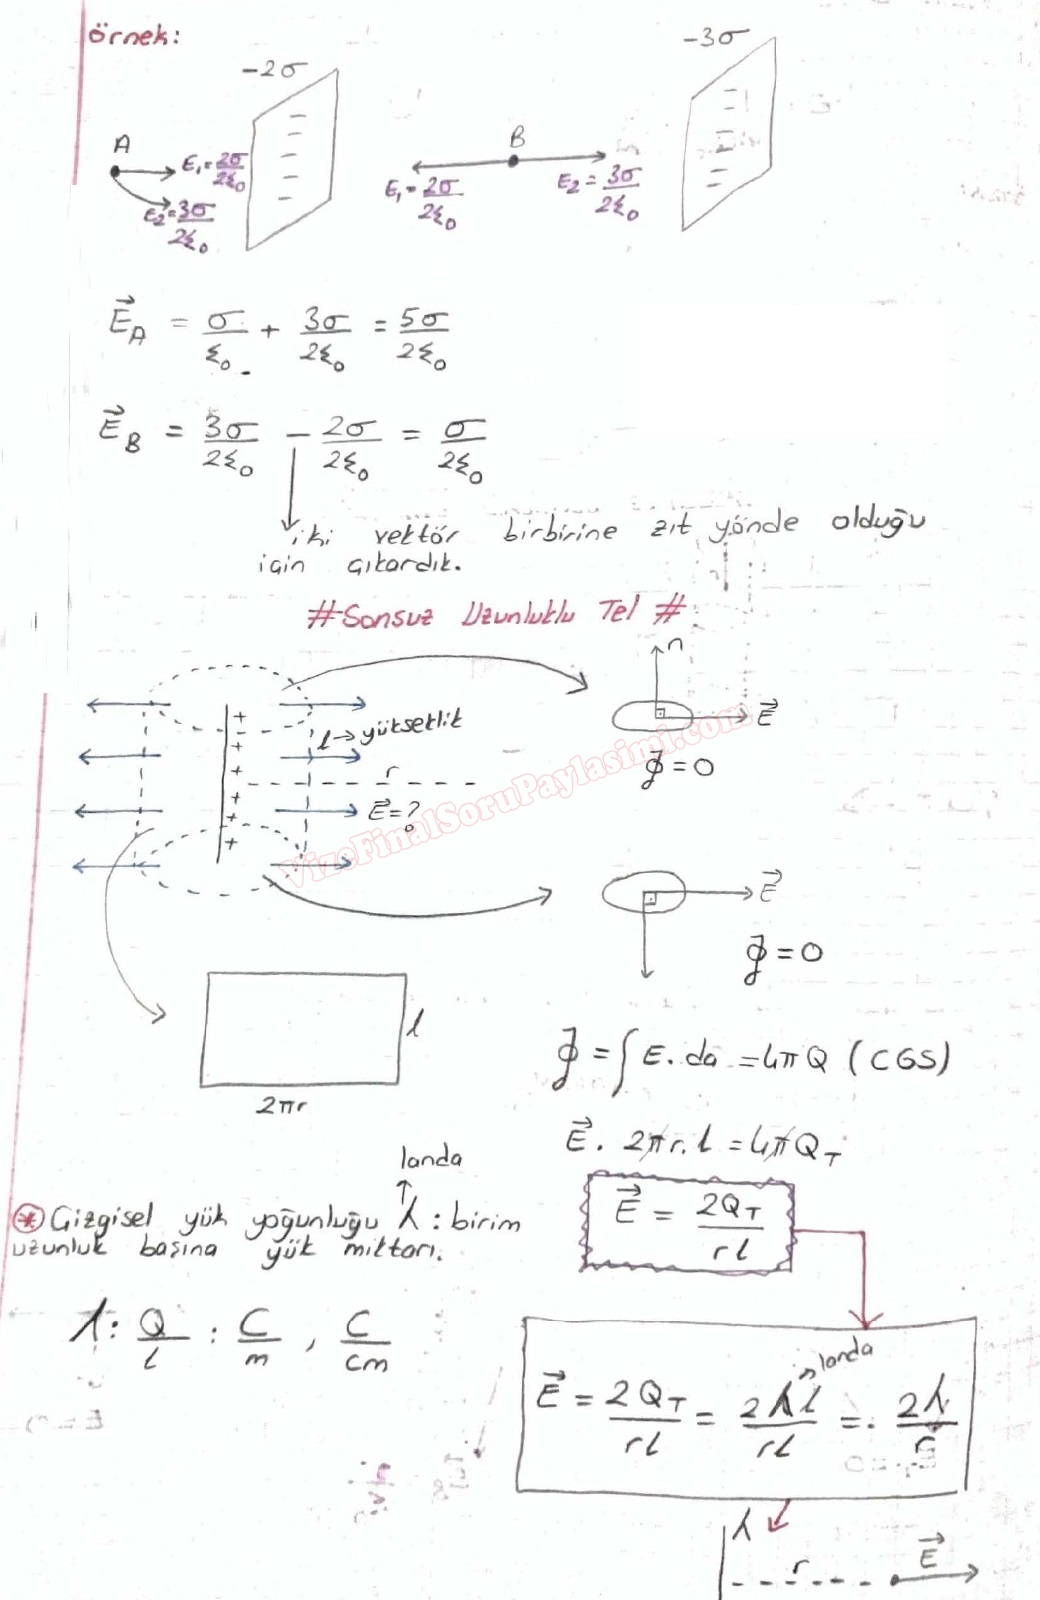 örnek:
-2σ
-3σ
A
E₁=2σ/2ξ₀
E₂=3σ/2ξ₀
B
E₁=2σ/2ξ₀
E₂=3σ/2ξ₀
E⃗_A = σ/ξ₀ + 3σ/2ξ₀ = 5σ/2ξ₀
E⃗_B = 3σ/2ξ₀ - 2σ/2ξ₀ = σ/2ξ₀
iki vektör birbirine zıt yönde olduğu
için çıkardık.
#Sonsuz Uzunluklu Tel #
n
E⃗
∮=0
l→yükseklik
r
E⃗=?
E⃗
∮=0
l
2πr
∮ = ∫E.da = 4πQ (CGS)
E⃗. 2πr.l = 4πQ_T
E⃗ = 2Q_T/rl
landa
* Çizgisel yük yoğunluğu λ : birim
uzunluk başına yük miktarı.
λ: Q/l : C/m , C/cm
landa
E⃗ = 2Q_T/rl = 2λl/rl = 2λ/r
λ
r
E⃗
VizeFinalSoruPaylasimi.com